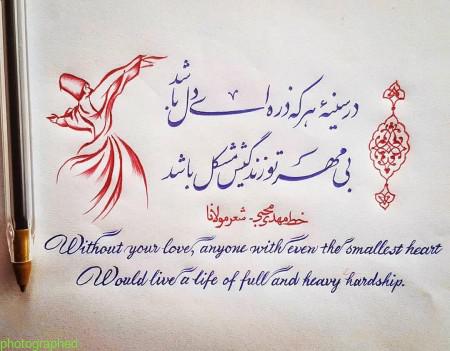 در سینهٔ هر که ذره ای دل باشد
بی مهر تو زندگیش مشکل باشد
خط مهدی - شعر مولانا
Without your love, anyone with even the smallest heart
Would live a life of full and heavy hardship.
photographed